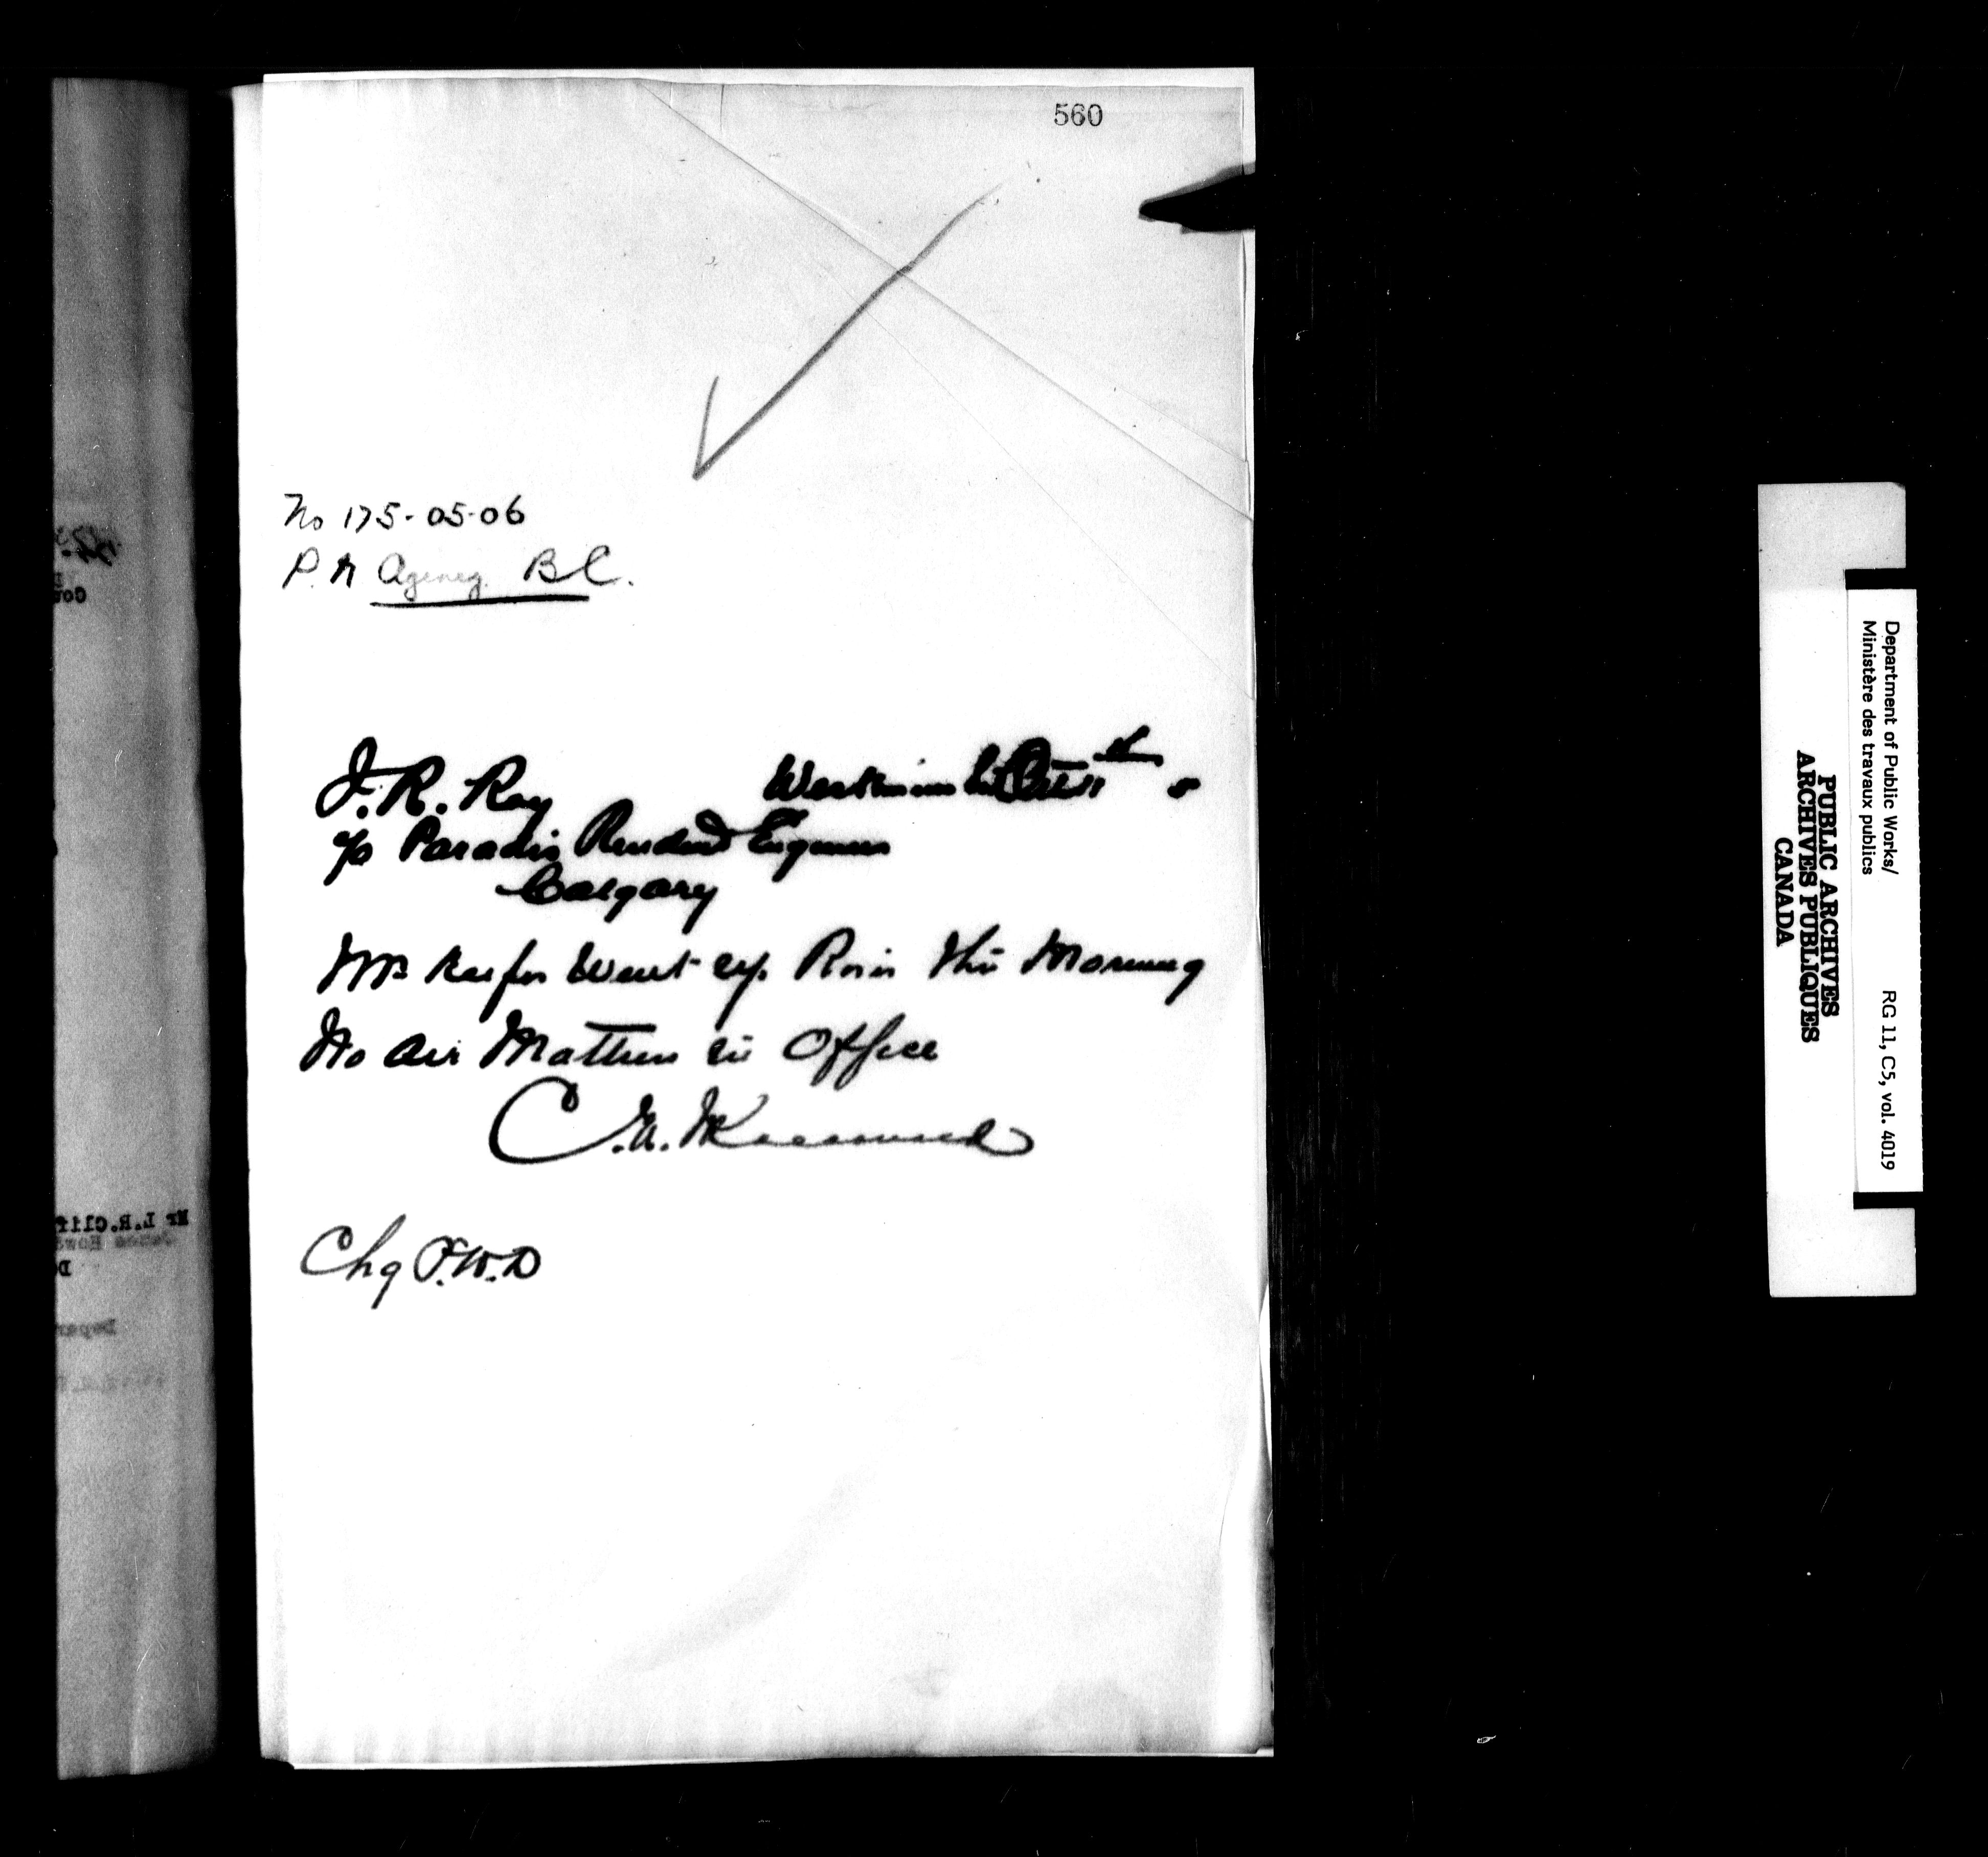 560
No 175-05-06
P. A Agency. B C.
J. R. Ray
c/o Paradis Resident Engineer
Calgary
Mr Keefer Went up River this Morning
No Air Matters in Office
C. A.
Chg P. W. D
Department of Public Works/
Ministère des travaux publics
RG 11, C5, vol. 4019
PUBLIC ARCHIVES
ARCHIVES PUBLIQUES
CANADA